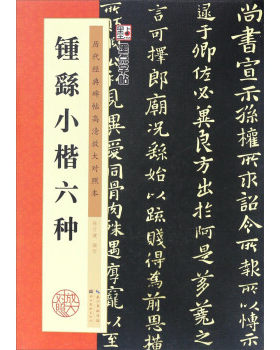 历代经典碑帖高清放大对照本
锺繇小楷六种
放大
对照
墨点字帖
尚書宣示孫權所求詔令所報所以博示
逮于卿佐必冀良方出於阿是芻蕘之
言可擇郎廟況繇始以疏賤得為前恩横
所盱睨公私見異愛同骨肉殊遇厚寵以至